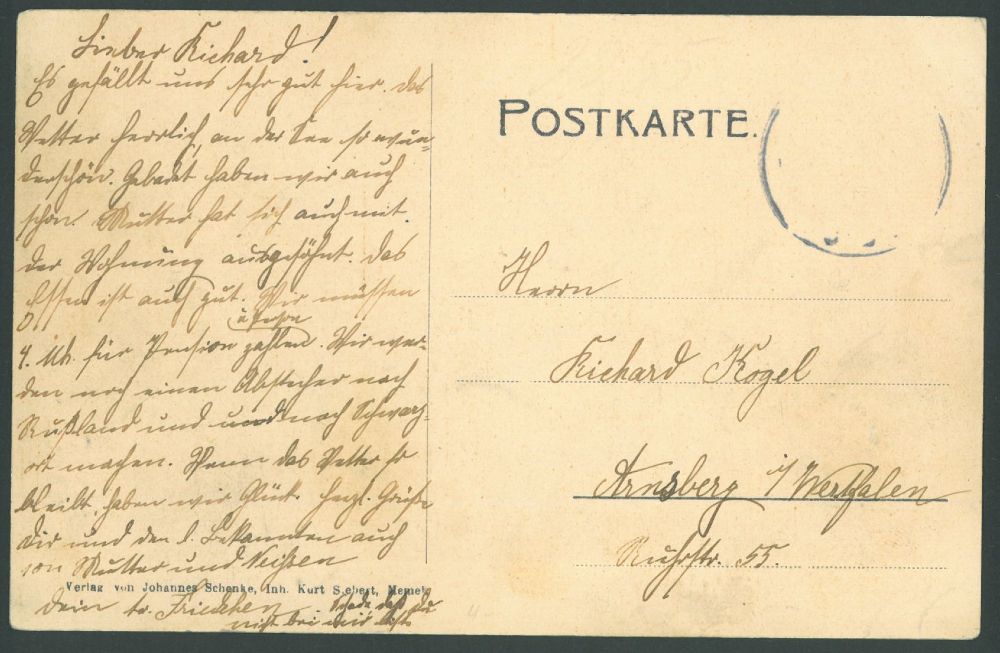 Lieber Richard!
Es gefällt uns sehr gut hier. Das
Wetter herrlich, an der See so wun-
derschön. Gebadet haben wir auch
schon. Mutter hat sich auch mit
der Wohnung ausgesöhnt. Das
Essen ist auch gut. Wir müssen
à Person
4. Mk. für Pension zahlen. Wir wer-
den noch einen Abstecher nach
Rußland und und nach Schwarz-
ort machen. Wenn das Wetter so
bleibt, haben wir Glück. Herzl. Grüße
Dir und den l. Bekannten auch
von Mutter und
Verlag von Johannes Schenke, Inh. Kurt Siebert, Memel.
Dein tr. Friedchen
Schade, daß Du
nicht bei mir bist.
POSTKARTE.
Herrn
Richard Kogel
Arnsberg i/Westfalen
Ruhrstr. 55.